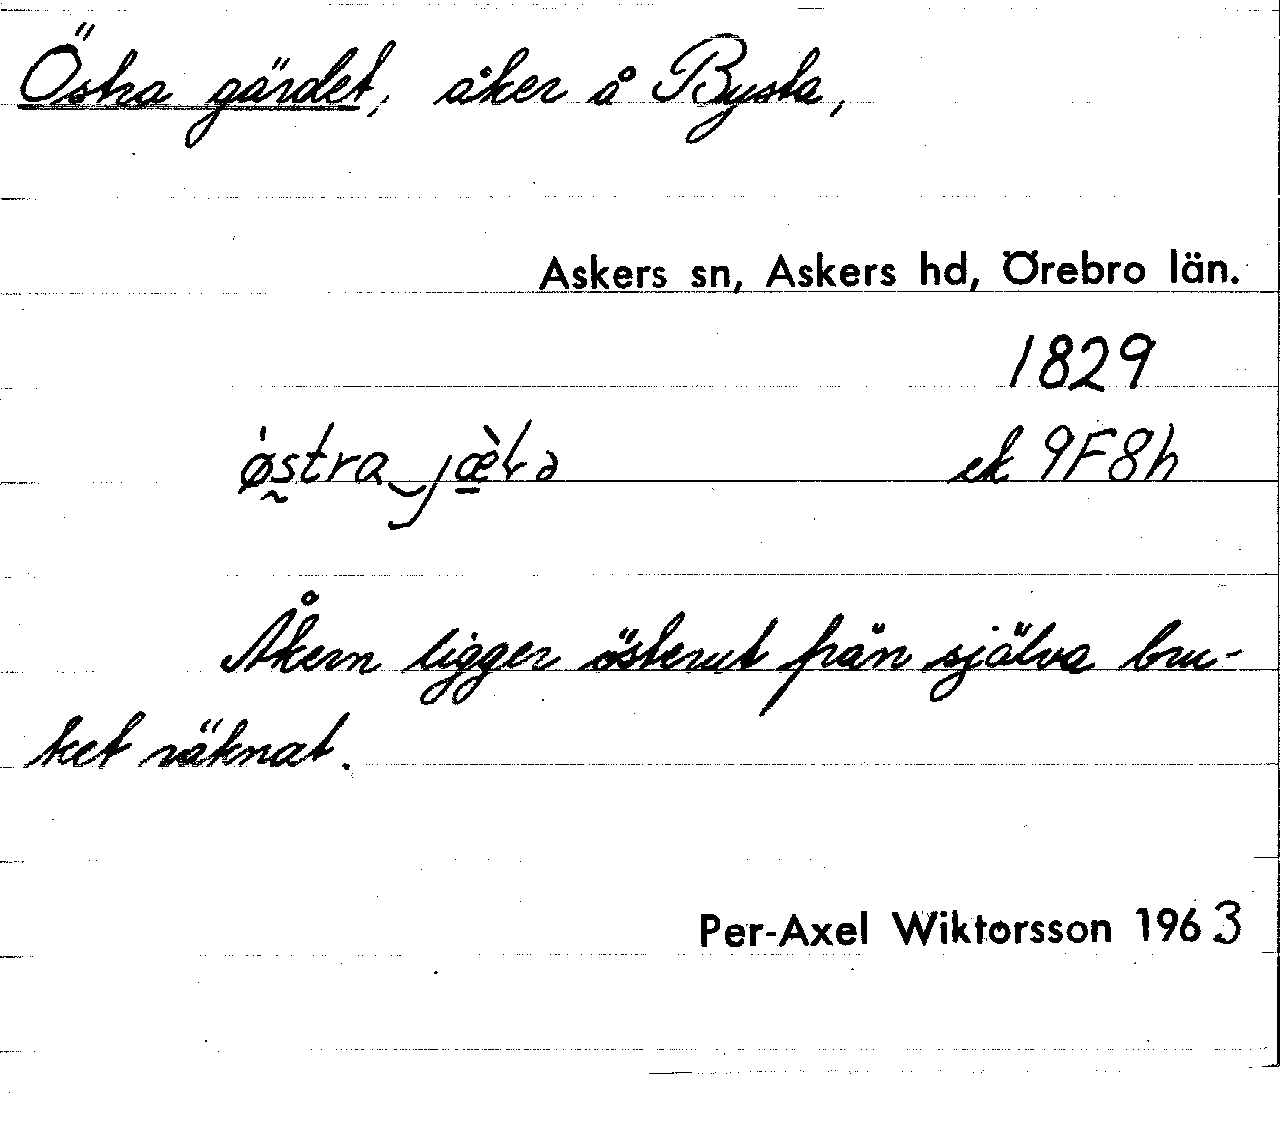 Östra gärdet, åker å Bysta,
Askers sn, Askers hd, Örebro län.
1829
ek 9F8h
Åkern ligger österut från själva bru-
ket räknat.
Per-Axel Wiktorsson 1963